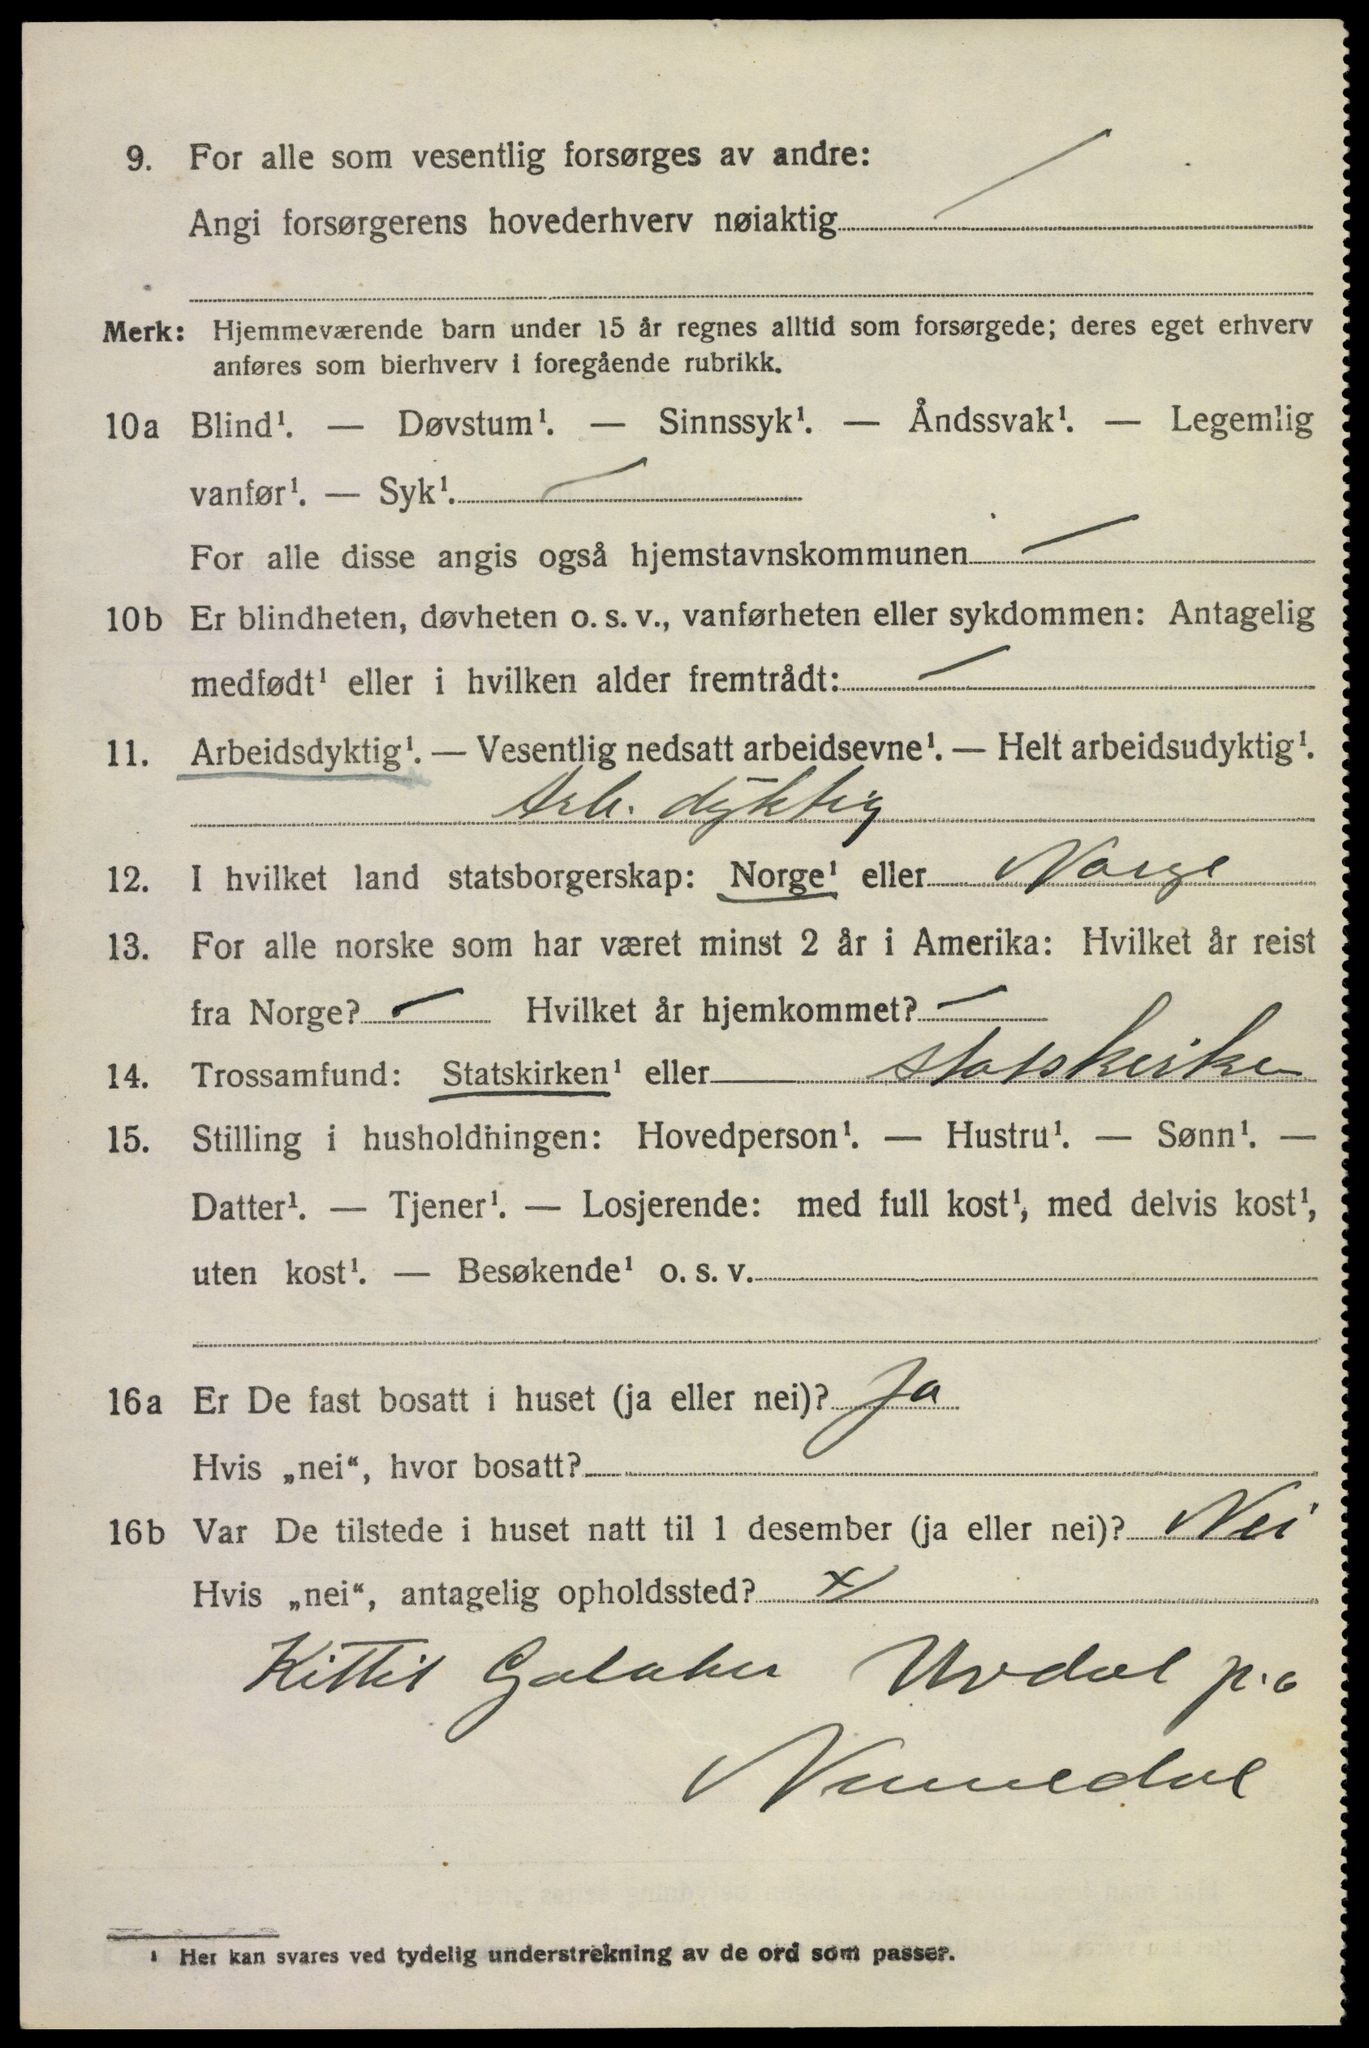 9. For alle som vesentlig forsørges av andre:
Angi forsørgerens hovederhverv nøiaktig
Merk: Hjemmeværende barn under 15 år regnes alltid som forsørgede; deres eget erhverv
anføres som bierhverv i foregående rubrikk.
10a Blind¹. — Døvstum¹. — Sinnssyk¹. — Åndssvak¹. — Legemlig
vanfør¹. — Syk¹.
For alle disse angis også hjemstavnskommunen
10b Er blindheten, døvheten o. s. v., vanførheten eller sykdommen: Antagelig
medfødt¹ eller i hvilken alder fremtrådt:
11. Arbeidsdyktig¹. — Vesentlig nedsatt arbeidsevne¹. — Helt arbeidsudyktig¹.
Arb. dyktig
12. I hvilket land statsborgerskap: Norge¹ eller Norge
13. For alle norske som har været minst 2 år i Amerika: Hvilket år reist
fra Norge? Hvilket år hjemkommet?
14. Trossamfund: Statskirken¹ eller statskirken
15. Stilling i husholdningen: Hovedperson¹. — Hustru¹. — Sønn¹. —
Datter¹. — Tjener¹. — Losjerende: med full kost¹, med delvis kost¹,
uten kost¹. — Besøkende¹ o. s. v.
16a Er De fast bosatt i huset (ja eller nei)? Ja
Hvis „nei“, hvor bosatt?
16b Var De tilstede i huset natt til 1 desember (ja eller nei)? Nei
Hvis „nei“, antagelig opholdssted? x/
Kittil Uvdal p.a
Numedal
¹ Her kan svares ved tydelig understrekning av de ord som passer.